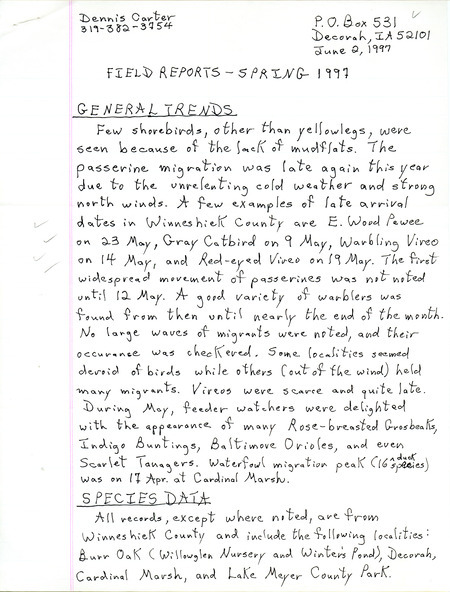 Dennis Carter
319-382-3754
P.O. Box 531
Decorah, IA 52101
June 2, 1997
FIELD REPORTS - SPRING 1997
GENERAL TRENDS
Few shorebirds, other than yellowlegs, were
seen because of the lack of mudflats. The
passerine migration was late again this year
due to the unrelenting cold weather and strong
north winds. A few examples of late arrival
dates in Winneshiek County are E. Wood Pewee
on 23 May, Gray Catbird on 9 May, Warbling Vireo
on 14 May, and Red-eyed Vireo on 19 May. The first
widespread movement of passerines was not noted
until 12 May. A good variety of warblers was
found from then until nearly the end of the month.
No large waves of migrants were noted, and their
occurance was checkered. Some localities seemed
devoid of birds while others (out of the wind) held
many migrants. Vireos were scarce and quite late.
During May, feeder watchers were delighted
with the appearance of many Rose-breasted Grosbeaks,
Indigo Buntings, Baltimore Orioles, and even
Scarlet Tanagers. Waterfowl migration peak (16 duck species)
was on 17 Apr. at Cardinal Marsh.
SPECIES DATA
All records, except where noted, are from
Winneshiek County and include the following localities:
Burr Oak (Willowglen Nursery and Winter's Pond), Decorah,
Cardinal Marsh, and Lake Meyer County Park.